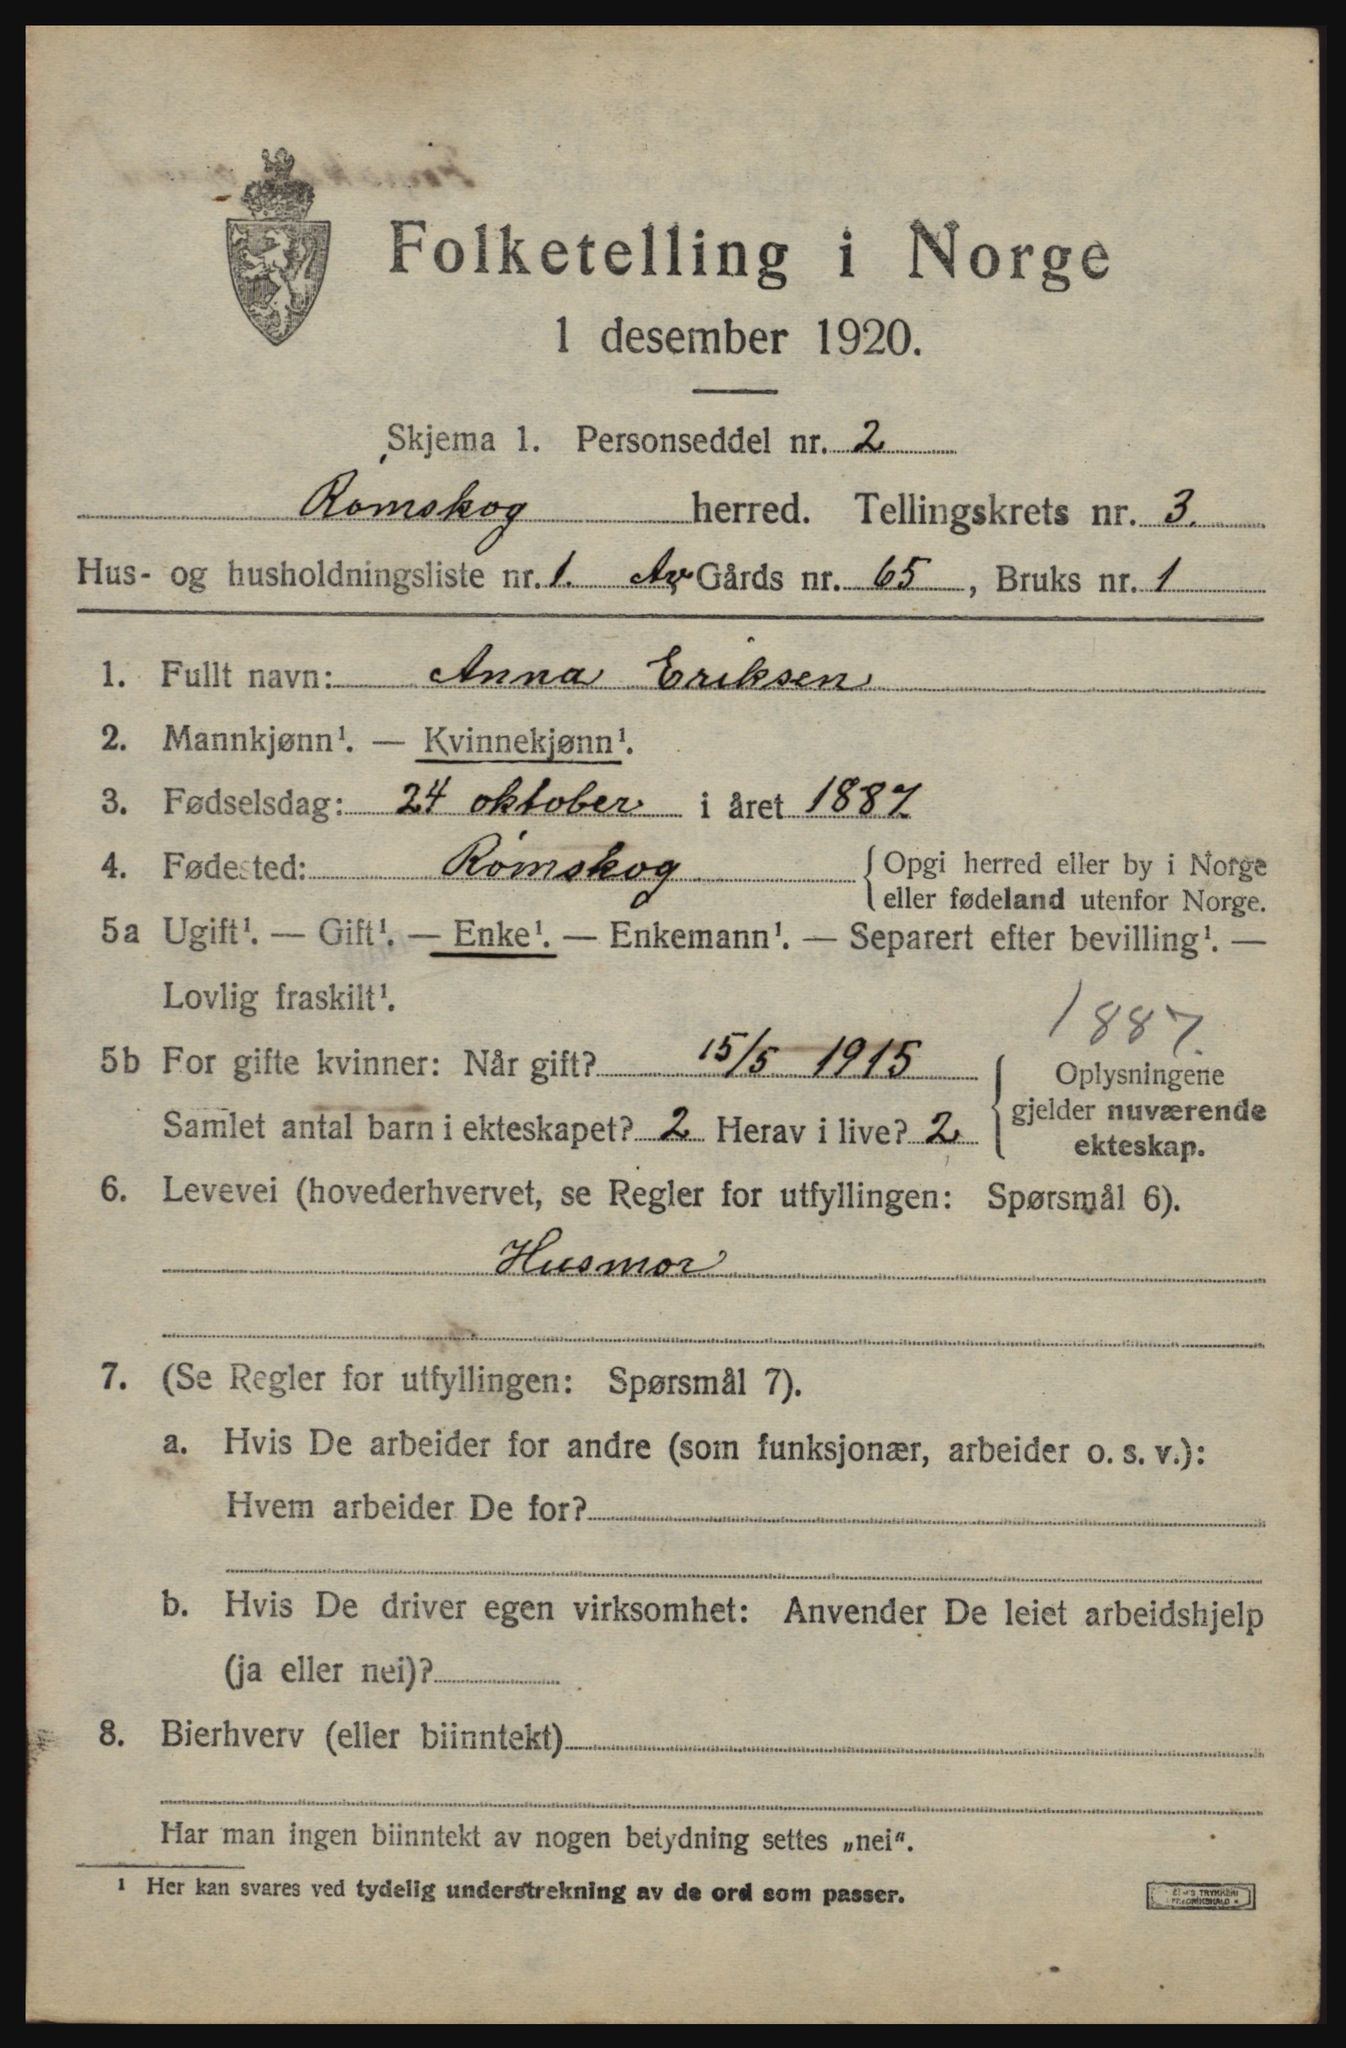 Folketelling i Norge
1 desember 1920.
Skjema 1. Personseddel nr. 2
Rømskog herred. Tellingskrets nr. 3.
Hus- og husholdningsliste nr. 1. Av Gårds nr. 65, Bruks nr. 1
1. Fullt navn: Anna Eriksen
2. Mannkjønn¹. — Kvinnekjønn¹.
3. Fødselsdag: 24 oktober i året 1887
4. Fødested: Rømskog { Opgi herred eller by i Norge
eller fødeland utenfor Norge.
5a Ugift¹. — Gift¹. — Enke¹. — Enkemann¹. — Separert efter bevilling¹. —
Lovlig fraskilt¹.
1887.
5b For gifte kvinner: Når gift? 15/5 1915 { Oplysningene
gjelder nuværende
Samlet antal barn i ekteskapet? 2 Herav i live? 2
ekteskap.
6. Levevei (hovederhvervet, se Regler for utfyllingen: Spørsmål 6).
Husmor
7. (Se Regler for utfyllingen: Spørsmål 7).
a. Hvis De arbeider for andre (som funksjonær, arbeider o. s. v.):
Hvem arbeider De for?
b. Hvis De driver egen virksomhet: Anvender De leiet arbeidshjelp
(ja eller nei)?
8. Bierhverv (eller biinntekt)
Har man ingen biinntekt av nogen betydning settes „nei“.
¹ Her kan svares ved tydelig understrekning av de ord som passer.
TRYKKERI
FREDRIKSHALD